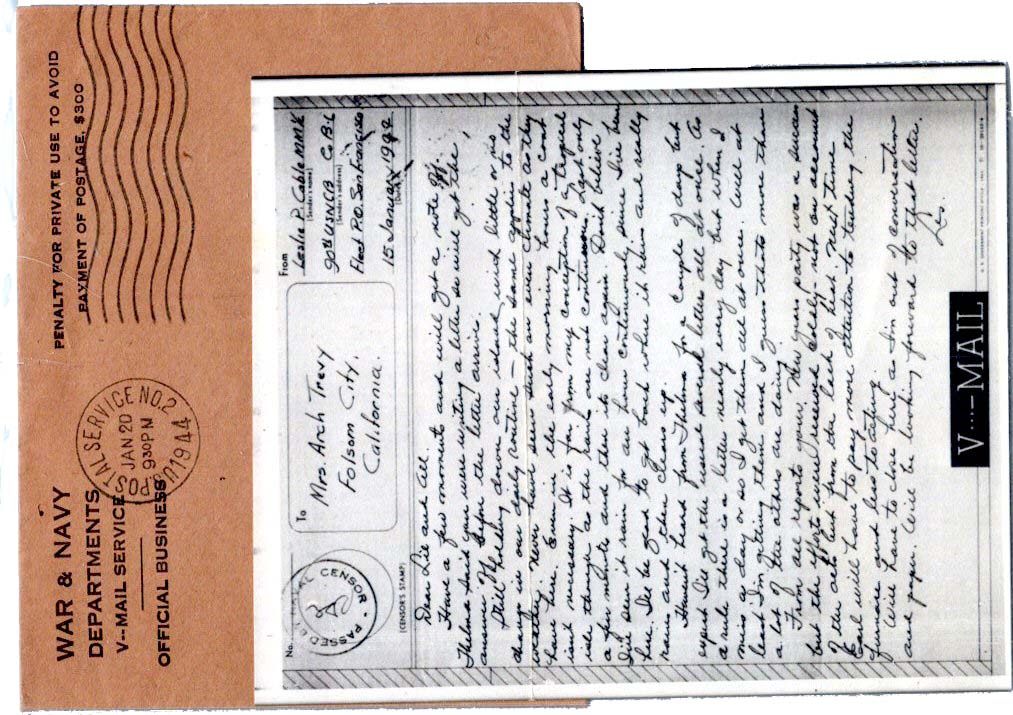 WAR & NAVY
DEPARTMENTS
V--MAIL SERVICE
OFFICIAL BUSINESS
POSTAL SERVICE NO. 2
JAN 20
9 30 PM
1944
PENALTY FOR PRIVATE USE TO AVOID
PAYMENT OF POSTAGE, $300
No.
PASSED BY NAVAL CENSOR
(CENSOR'S STAMP)
To
Mrs. Arch Trey
Folsom City,
California.
From
Leslie P. Cable MM1/c
(Sender's name)
90th USNCB Co. B
(Sender's address)
Fleet P.O. San Francisco
15 January 1944
(Date)
Dear Lil and All.
Have a few moments and will get a note off.
Thelma said you were writing a letter so will get the
answer off before the letter arrives.
Still holding down our island, and little or no
change in our daily routine — the same applies to the
weather, never have seen such an even climate as they
have here. Even in the early morning hours a coat
isnt necessary. It is far from my conception of a tropical
isle though as the rains are not continuous. Last only
a few minutes and then its clear again. Dont believe
I've seen it rain for an hour continuously since I've been
here. I'll be good to get back where it rains and really
rains and then clears up
Havent heard from Thelma for a couple of days but
expect I'll get the usual several letters all at once. As
a rule there is a letter nearly every day but when I
miss a day or so I get them all at once. Well at
least I'm getting them and I guess thats more than
a lot of the others are doing.
From all reports your New Years party was a success
but the efforts were received coldly — not on account
of the acts but from the lack of heat. Next time
Earl will have to pay more attention to tending the
furnace and less to eating.
Will have to close Lil as I'm out of conversation
and paper. Will be looking forward to that letter.
Les.
V···—MAIL